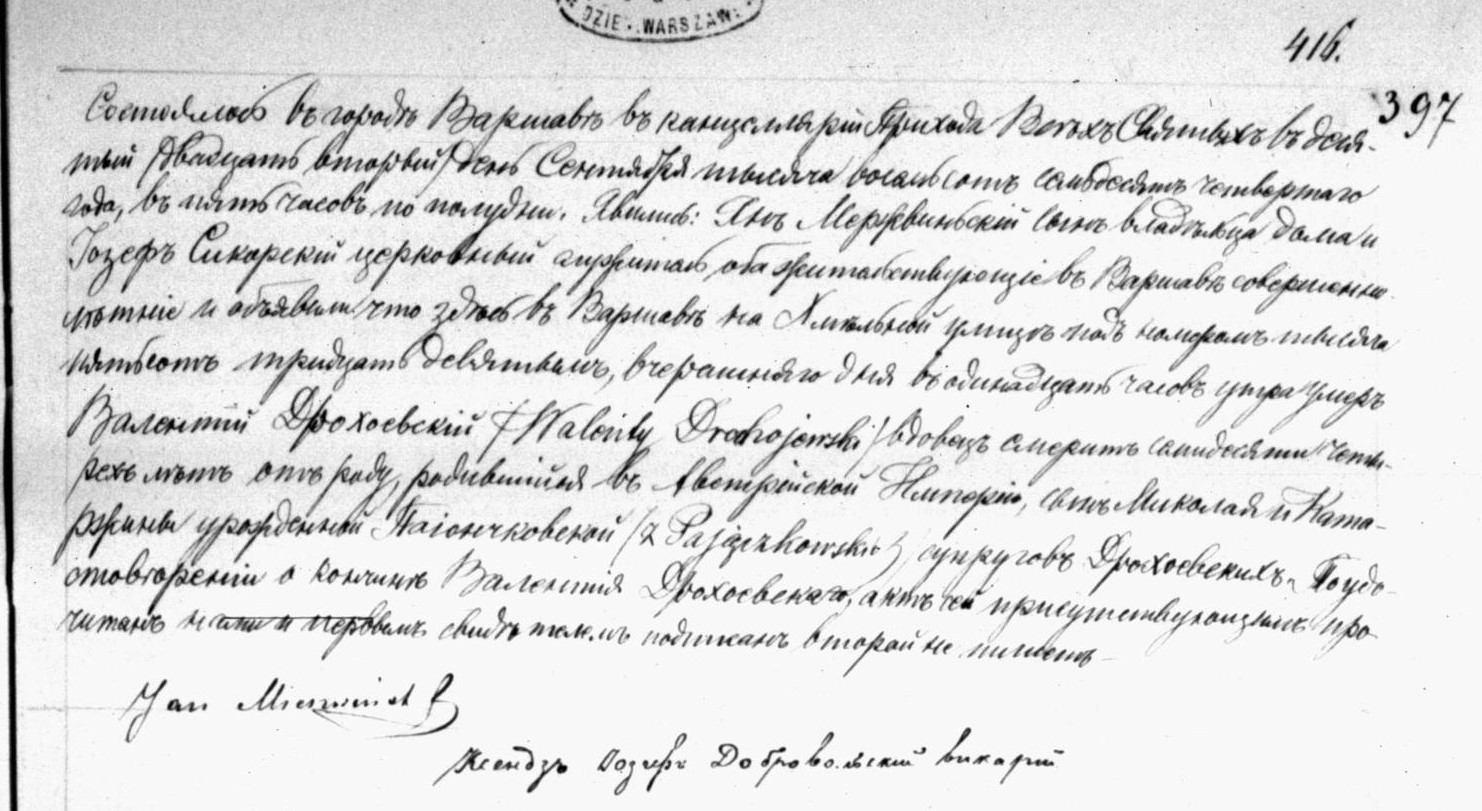 DZIE . WARSZAW
416.
397
Состоялось въ городѣ Варшавѣ въ канцелляріи Прихода Всѣхъ Святыхъ въ деся-
тый /двадцать второй/ день Сентября тысяча восемьсотъ семьдесятъ четвертаго
года, въ пять часовъ по полудни. Явились: Янъ сынъ владѣльца дома и
Іозефъ Сикорскій церковный оба жительствующіе въ Варшавѣ совершенно-
лѣтніе и объявили что здѣсь въ Варшавѣ на Хмѣльной улицѣ подъ номеромъ тысяча
пятьсотъ тридцать девятымъ, вчерашняго дня въ одинадцать часовъ утра умеръ
Валентій Дрохоевскій /Walenty Drohojewski/ вдовецъ семидесяти четы-
рехъ лѣтъ отъ роду, родившійся въ Австрійской Имперіи, сынъ Миколая и Ката-
ржины урожденной Паіончковской /z Pajączkowskich/ супруговъ Дрохоевскихъ. По удо-
стовѣреніи о кончинѣ Валентія Дрохоевскаго, актъ сей присутствующимъ про-
читанъ нами и первымъ свидѣтелемъ подписанъ второй не пишетъ
Jan
Ксендзъ Іозефъ Добровольскій викарій